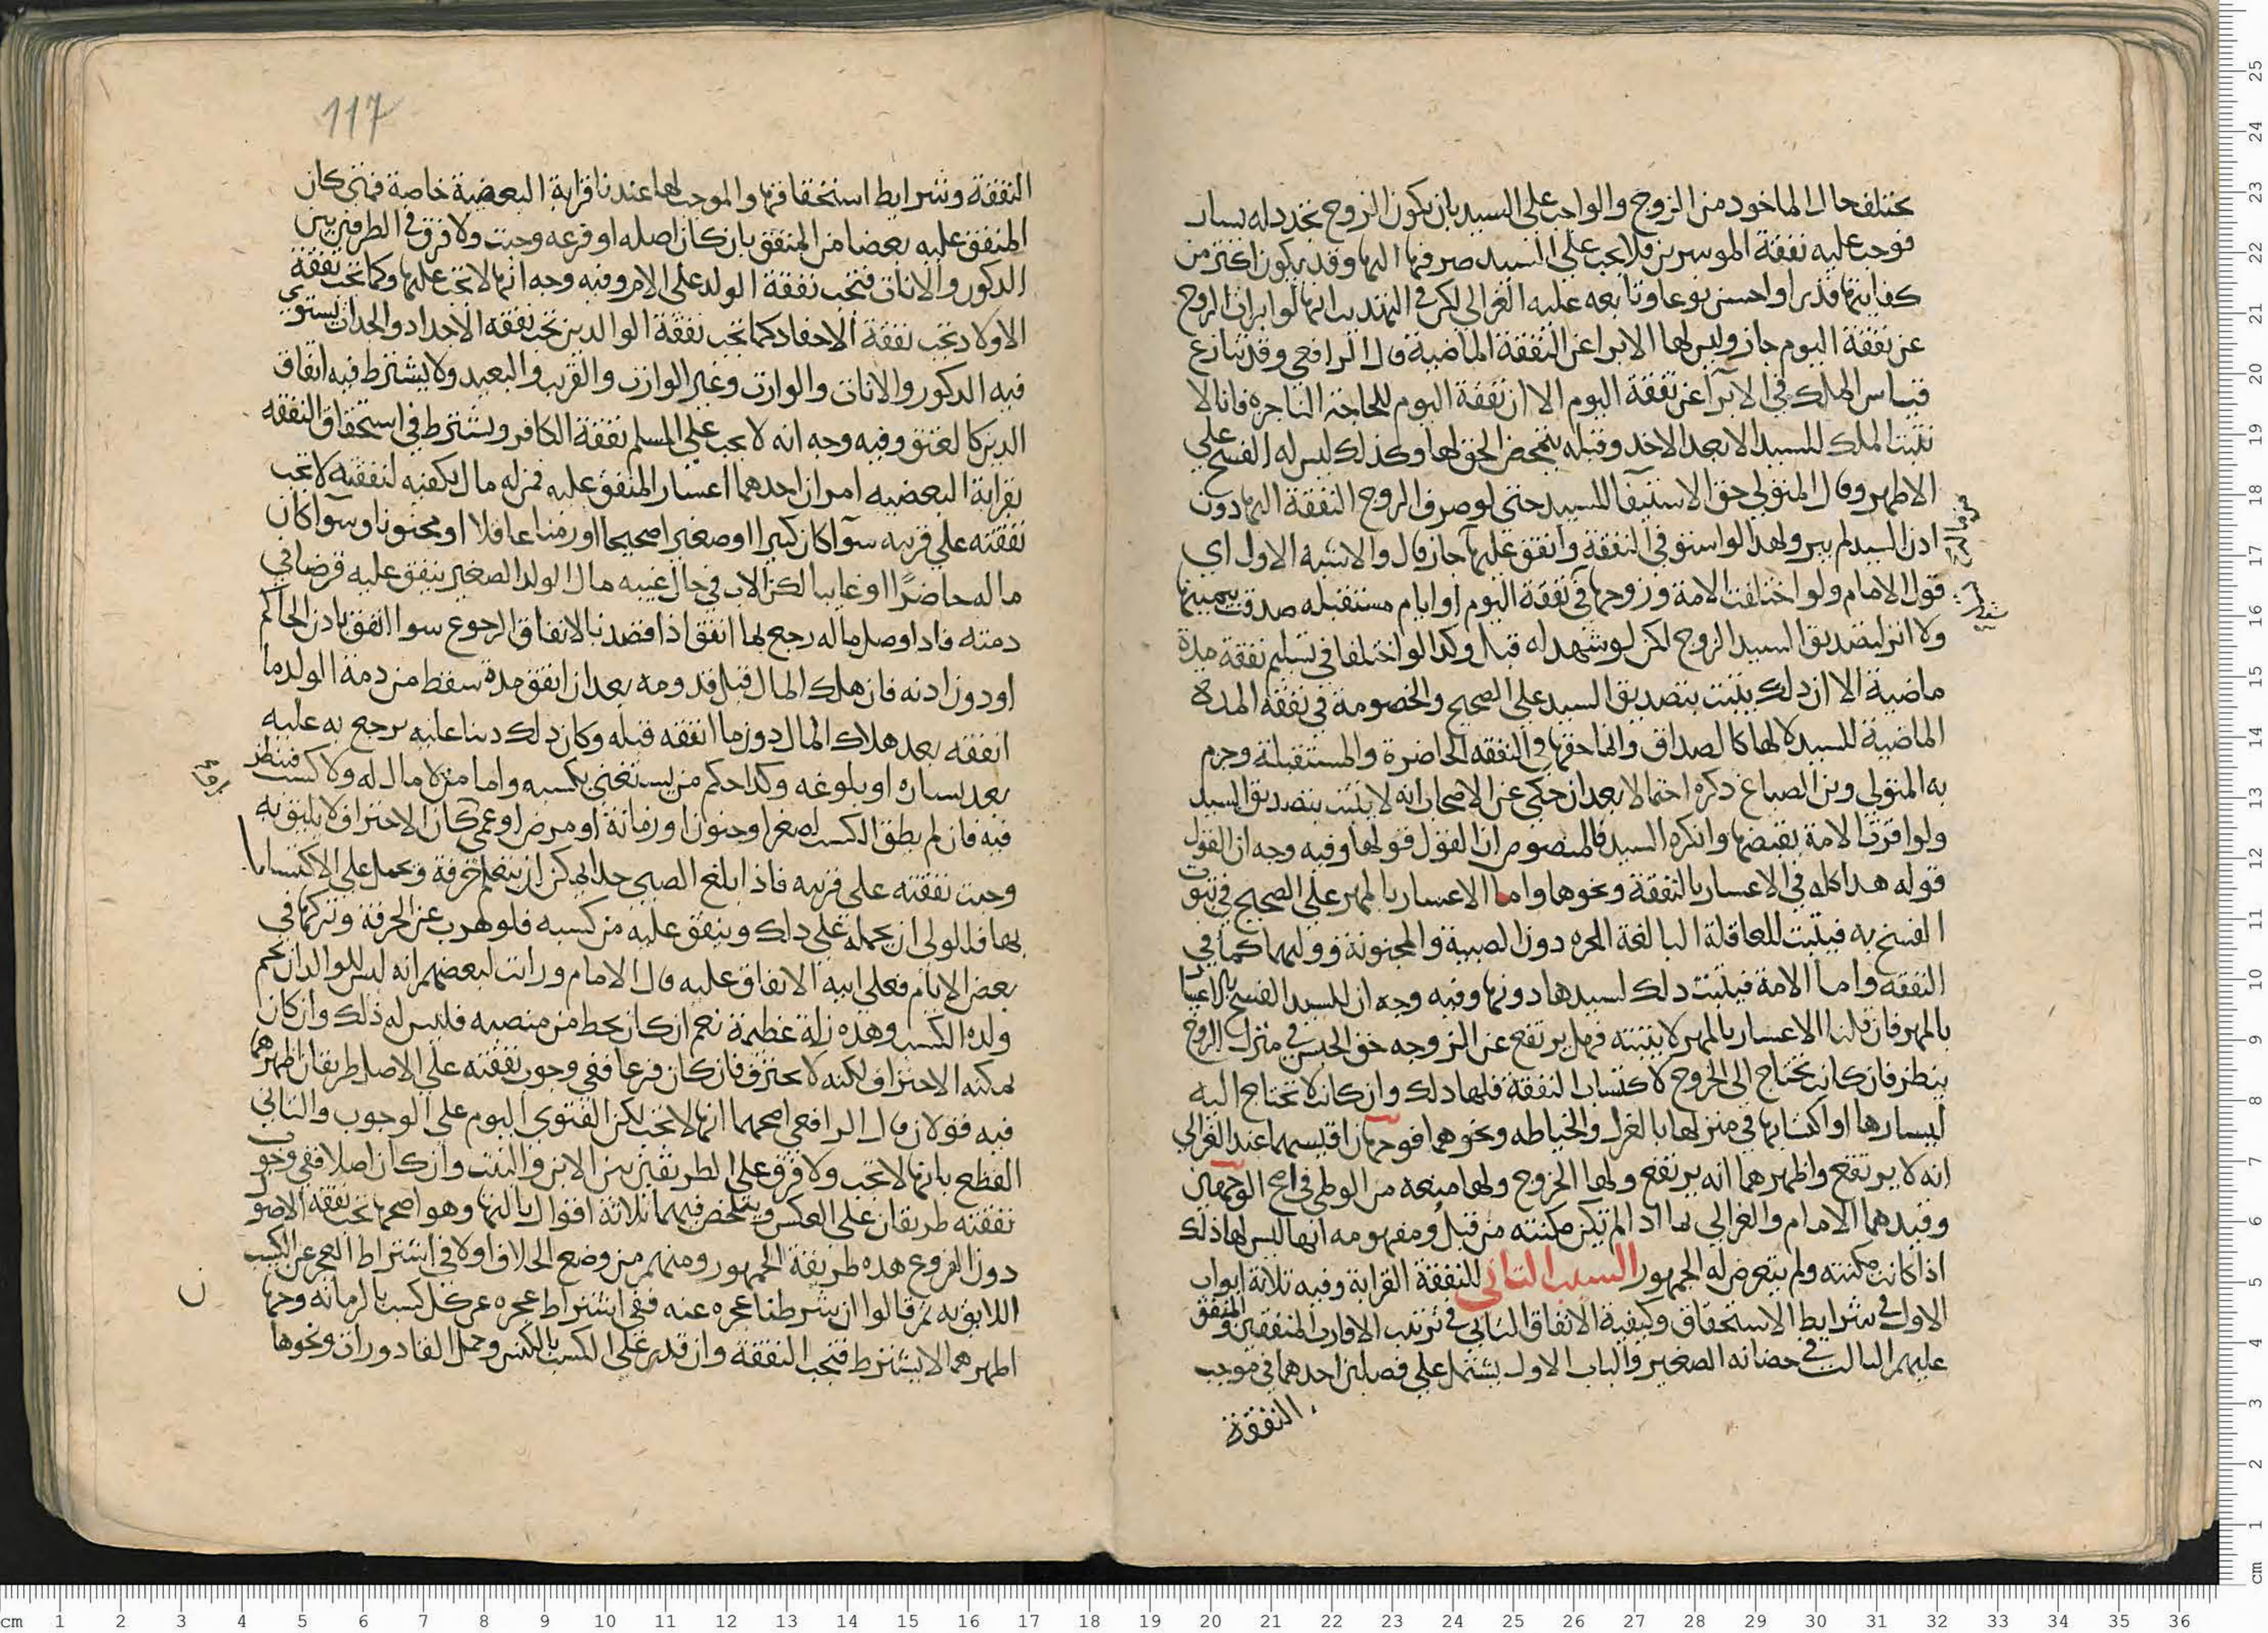 يختلف حال الماخوذ من الزوج والواجب على السيد بان يكون الزوج تجدد له يسار
فوجب عليه نفقة الموسرين فلا يجب على السيد صرفها اليها وقد يكون اكثر من
كفايتها قدرا او احسن نوعا وتابعه عليه الغزالي لكن في التهذيب انها لو ابرات الزوج
عن نفقة اليوم جاز وليس لها الابرا عن النفقة الماضية قال الرافعي وقد ينازع
قياس الملك في الابرآ عن نفقة اليوم الا ان نفقة اليوم للحاجة الناجزه فانا لا
نثبت الملك للسيد الا بعد الاخد وقبله يتمحض الحق لها وكذلك ليس له الفسخ على
الاظهر وقال المتولي حق الاستيفا للسيد حتى لو صرف الزوج النفقة اليها دون
ادن السيد لم يبر ولهدا لو استوفى النفقة وانفق عليها جاز قال والاشبه الاول اي
قول الامام ولو اختلفت الامة وزوجها في نفقة اليوم او ايام مستقبله صدقت بيمينها
ولا اثر لتصديق السيد الزوج لكن لو شهد له قبل وكدا لو اختلفا في تسليم نفقة مدة
ماضية الا ان دلك يثبت بتصديق السيد على الصحيح والخصومة في نفقة المدة
الماضية للسيد لا لها كالصداق وانما حقها في النفقه الحاضرة والمستقبلة وجزم
به المتولي وبن الصباغ دكره احتمالا بعد ان حكى عن الاصحاب انه لا يثبت بتصديق السيد
ولو اقرت الامة بقبضها وانكره السيد فالمنصوص ان القول قولها وفيه وجه ان القول
قوله هدا كله في الاعسار بالنفقة ونحوها واما الاعسار بالمهر على الصحيح في ثبوت
الفسخ به فيثبت للعاقلة البالغة الحره دون الصبية والمجنونة ووليهما كما في
النفقه واما الامة فيثبت دلك لسيدها دونها وفيه وجه ان للسيد الفسخ بالاعسار
بالمهر فان قلنا الاعسار بالمهر لا يثبته فهل يرتفع عن الزوجه حق الحبس في منزل الزوج
ينظر فان كانت تحتاج الى الخروج لاكتساب النفقة فلها دلك وان كانت لا تحتاج اليه
ليسارها او اكتسابها في منزلها بالغزل والخياطه ونحوهما فوجهان اقيسهما عند الغزالي
انه لا يرتفع واظهرهما انه يرتفع ولها الخروج ولها منعه من الوطي في اصح الوجهين
وقيدهما الامام والغزالي بما اد الم تكن مكنته من قبل ومفهومه انها ليس لها ذلك
اذا كانت مكنته ولم يتعرض له الجمهور السبب الثاني للنفقة القرابة وفيه ثلاثة ابواب
الاول في شرايط الاستحقاق وكيفية الانفاق الثاني في ترتيب الاقارب المنفقين والمنفق
عليهم الثالث في حضانه الصغير والباب الاول يشتمل على فصلين احدهما في موجب
النفقة
117
النفقة وشرايط استحقاقها والموجب لها عندنا قرابة البعضية خاصة فمتى كان
المنفق عليه بعضا من المنفق بان كان اصله او فرعه وجبت ولا فرق في الطرفين بين
الدكور والاناث فتجب نفقة الولد على الام وفيه وجه انها لا تجب عليها وكما تجب نفقة
الاولاد تجب نفقة الاحفاد كما تجب نفقة الوالدين تجب نفقه الاجداد والجدات يستوي
فيه الدكور والاناث والوارث وغير الوارث والقريب والبعيد ولا يشترط فيه اتفاق
الدين كالعتق وفيه وجه انه لا يجب على المسلم نفقة الكافر ويشترط في استحقاق النفقه
بقرابة البعضيه امران احدهما اعسار المنفق عليه فمن له مال يكفيه لنفقته لا تجب
نفقته على قريبه سوآ كان كبيرا او صغيرا صحيحا او زمنا عاقلا او مجنونا وسوآ كان
ماله حاضرًا او غايبا لكن الاب في حال غيبه مال الولد الصغير ينفق عليه قرضا في
دمته فادا وصل ماله رجع بما انفق اذا قصد بالانفاق الرجوع سوا انفق بادن الحاكم
او دون ادنه فان هلك المال قبل قدومه بعد ان انفق مدة سقط من دمة الولد ما
انفقه بعد هلاك المال دون ما انفقه قبله وكان دلك دينا عليه يرجع به عليه
بعد يساره او بلوغه وكدا حكم من يستغني بكسبه واما من لا مال له ولا كسب فينظر
فيه فان لم يطق الكسب لصغر او جنون او زمانة او مرض او عمى كان الاحتراف لا يليق به
وجبت نفقته على قريبه فاذا بلغ الصبي حدا يمكن ان يتعلم حرفة ويحمل على الاكتساب
بها فللولى ان يحمله على دلك وينفق عليه من كسبه فلو هرب عن الحرفة وتركها في
بعض الايام فعلى ابيه الانفاق عليه قال الامام ورايت لبعضهم انه ليس للوالد ان يحم
ولده الكسب وهذه زلة عظيمة نعم ان كان يحط من منصبه فليس له ذلك وان كان
يمكنه الاحتراف لكنه لا يحترف فان كان فرعا ففي وجوب نفقته على الاصل طريقان اظهرهما
فيه قولان قال الرافعي اصحهما انها لا تجب لكن الفتوى اليوم على الوجوب والثاني
القطع بانها لا تجب ولا فرق على الطريقين بين الابن والبنت وان كان اصلا ففي وجوب
نفقته طريقان على العكس ويتلخص فيهما ثلاثة اقوال ثالثها وهو اصحها تجب نفقه الاصو
دون الفروع هده طريقة الجمهور ومنهم من وضع الخلاف اولا في اشتراط العجز عن الكسب
اللايق به ثم قالوا ان شرطنا عجزه عنه ففي اشتراط عجزه عن كل كسب بالزمانه وجها
اظهرهما لا يشترط فتجب النفقة وان قدر على الكسب بالكنس وحمل القادورات ونحوها